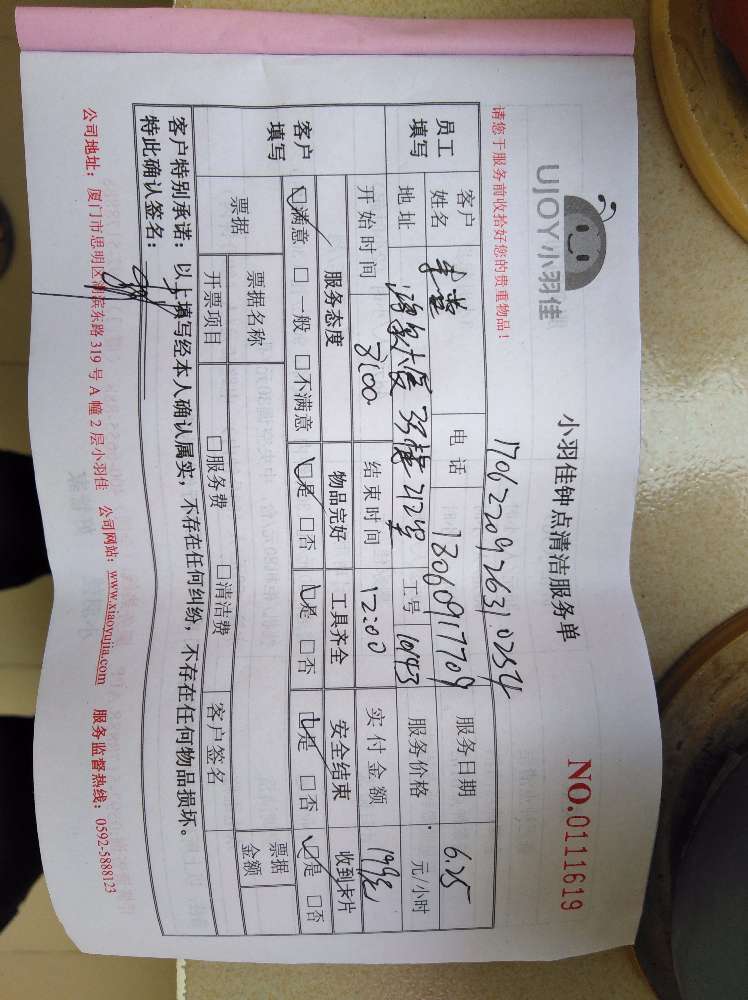 UJOY小羽佳
小羽佳钟点清洁服务单
NO.0111619
请您于服务前收拾好您的贵重物品！
170622092631.0254
员工填写
客户姓名
电话 13606917709
服务日期 6.25
地址 鸿泉大厦 33楼 212室
工号 10143
服务价格 元/小时
开始时间 8:00
结束时间 12:00
实付金额 199元
客户填写
服务态度 物品完好 工具齐全 安全结束 收到卡片
☑满意 □一般 □不满意 ☑是 □否 ☑是 □否 ☑是 □否 ☑是 □否
票据 票据名称 票据金额
开票项目 □服务费 □清洁费 客户签名
客户特别承诺：以上填写经本人确认属实，不存在任何纠纷，不存在任何物品损坏。
特此确认签名：
公司地址：厦门市思明区湖滨东路319号A幢2层小羽佳 公司网站：www.xiaoyujia.com 服务监督热线：0592-5888123